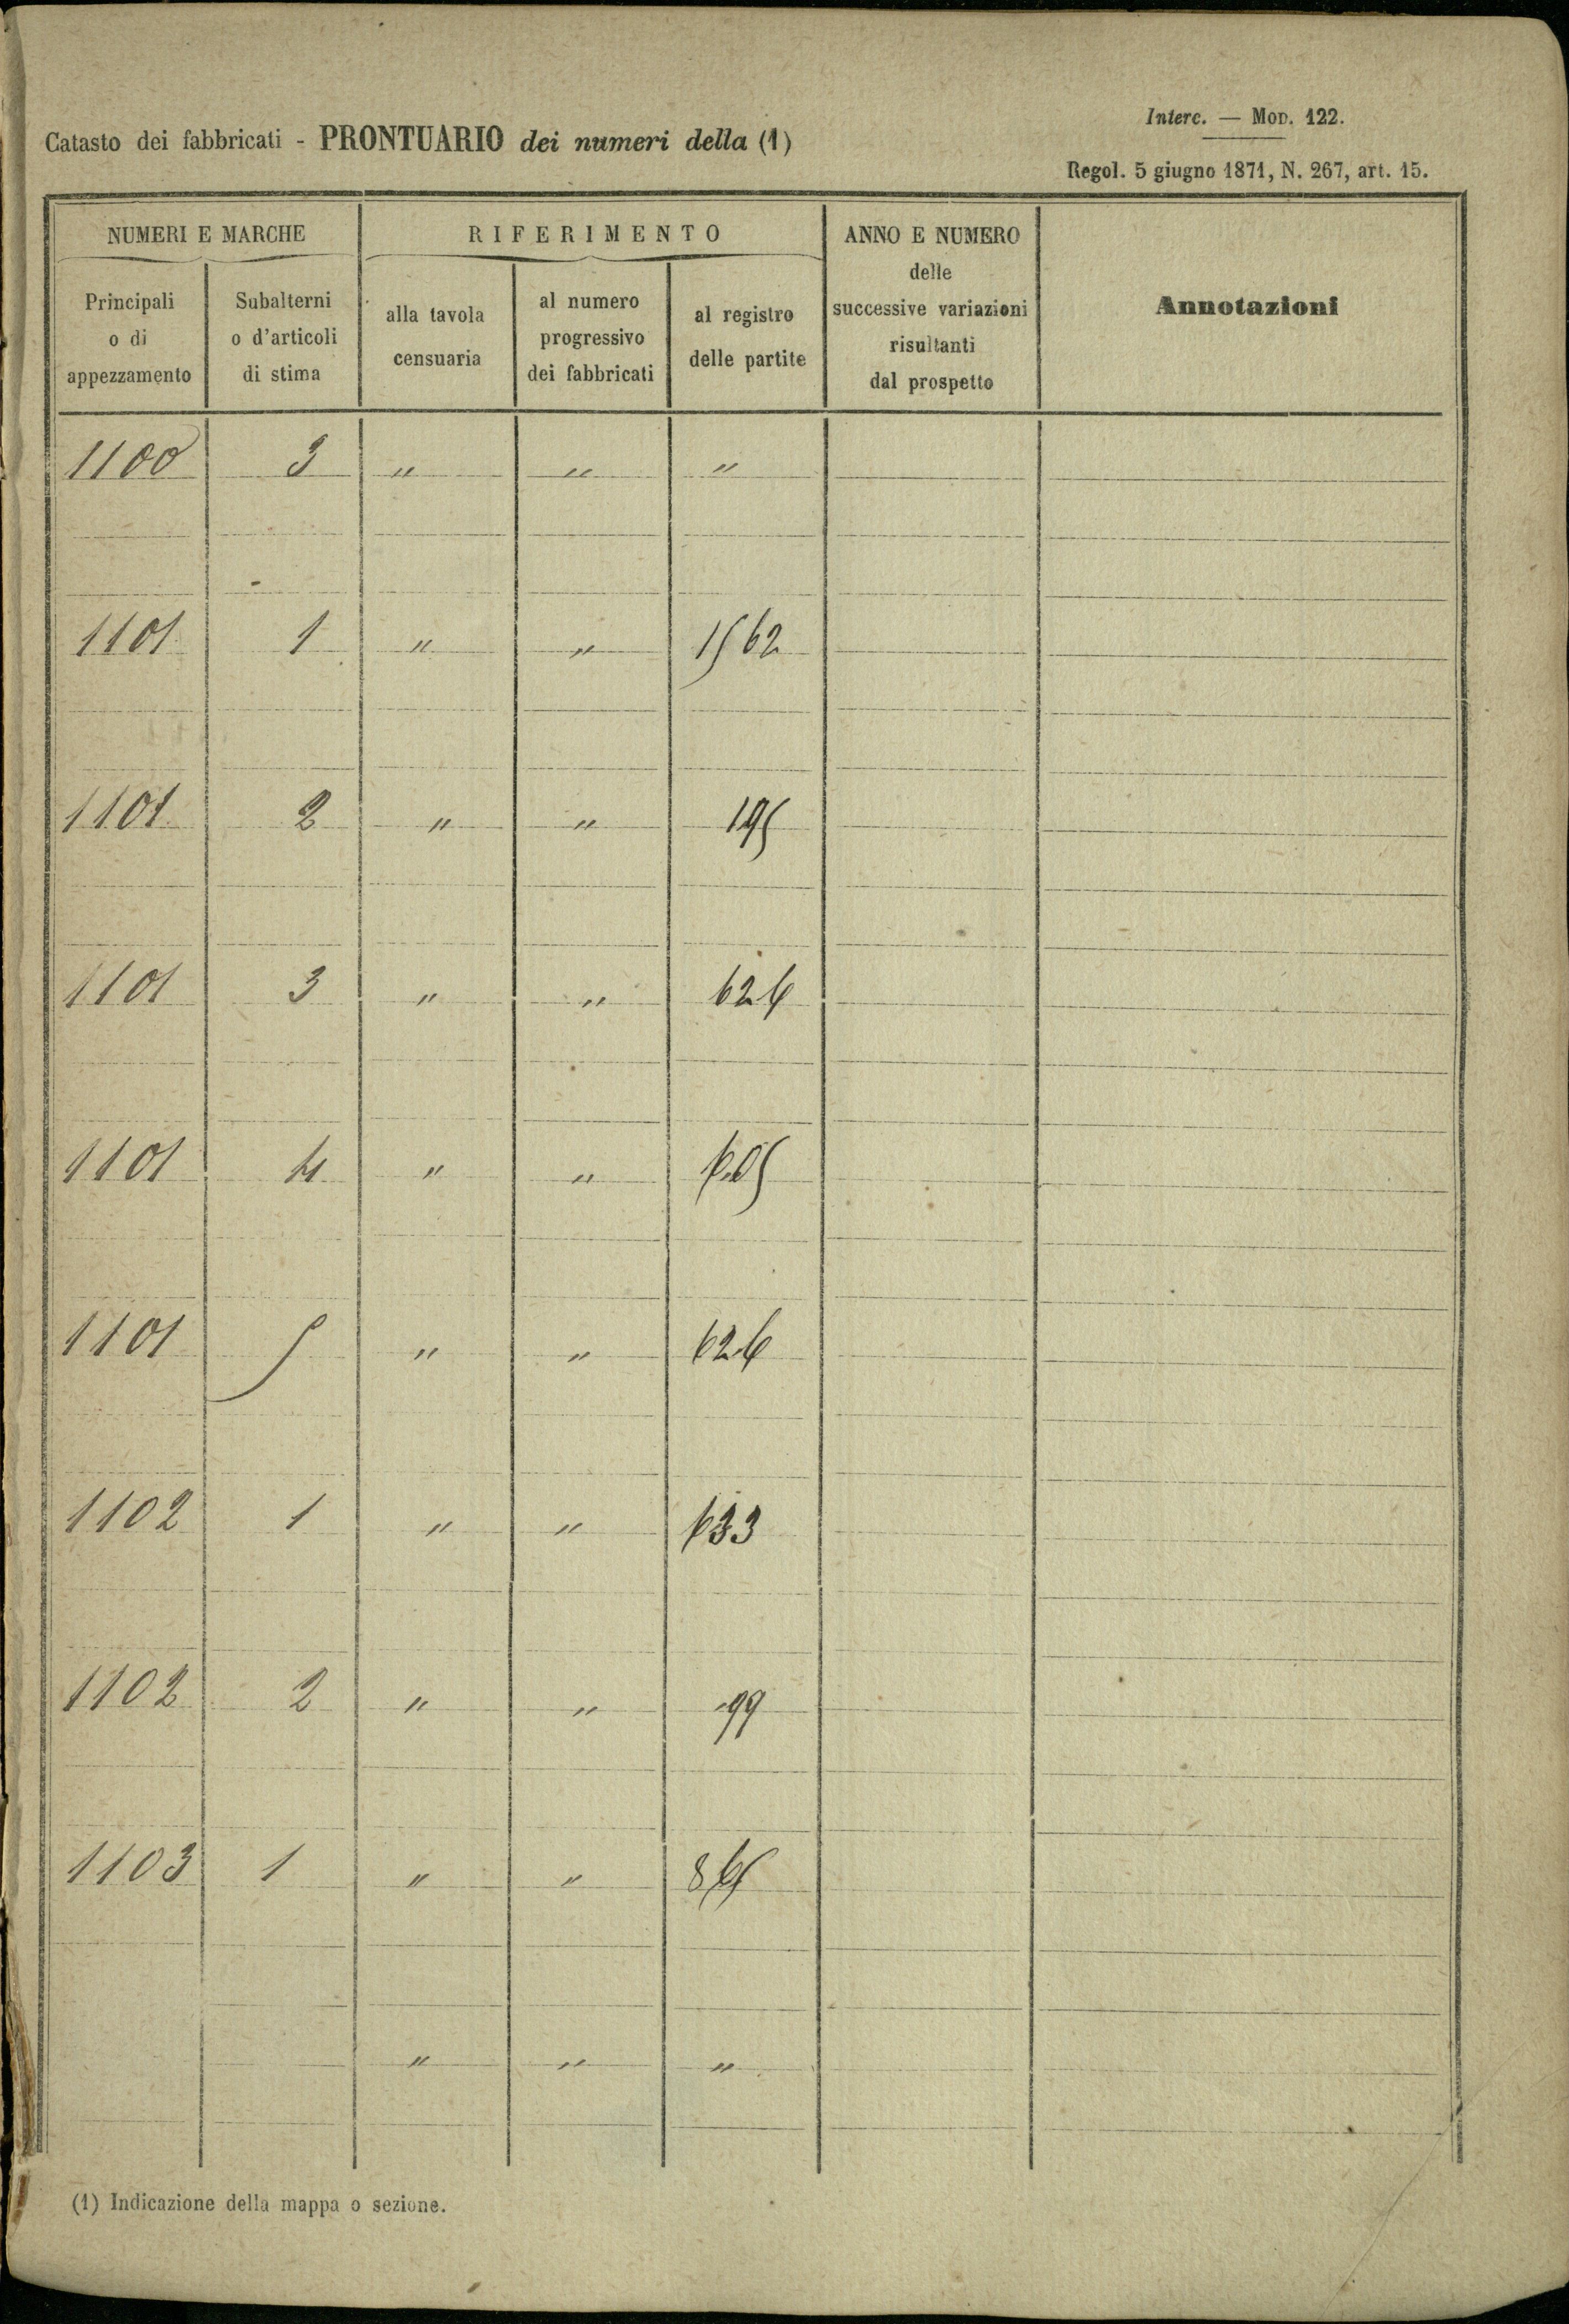 Interc. — Mod. 122.
Catasto dei fabbricati - PRONTUARIO dei numeri della (1)
Regol. 5 giugno 1871, N. 267, art. 15.
NUMERI E MARCHE
RIFERIMENTO
ANNO E NUMERO
delle
successive variazioni
risultanti
dal prospetto
Annotazioni
Principali
o di
appezzamento
Subalterni
o d'articoli
di stima
alla tavola
censuaria
al numero
progressivo
dei fabbricati
al registro
delle partite
1100 3 " " "
1101 1 " " 1562
1101 2 " " 195
1101 3 " " 626
1101 4 " " 605
1101 5 " " 626
1102 1 " " 633
1102 2 " " 99
1103 1 " " 865
" " "
(1) Indicazione della mappa o sezione.